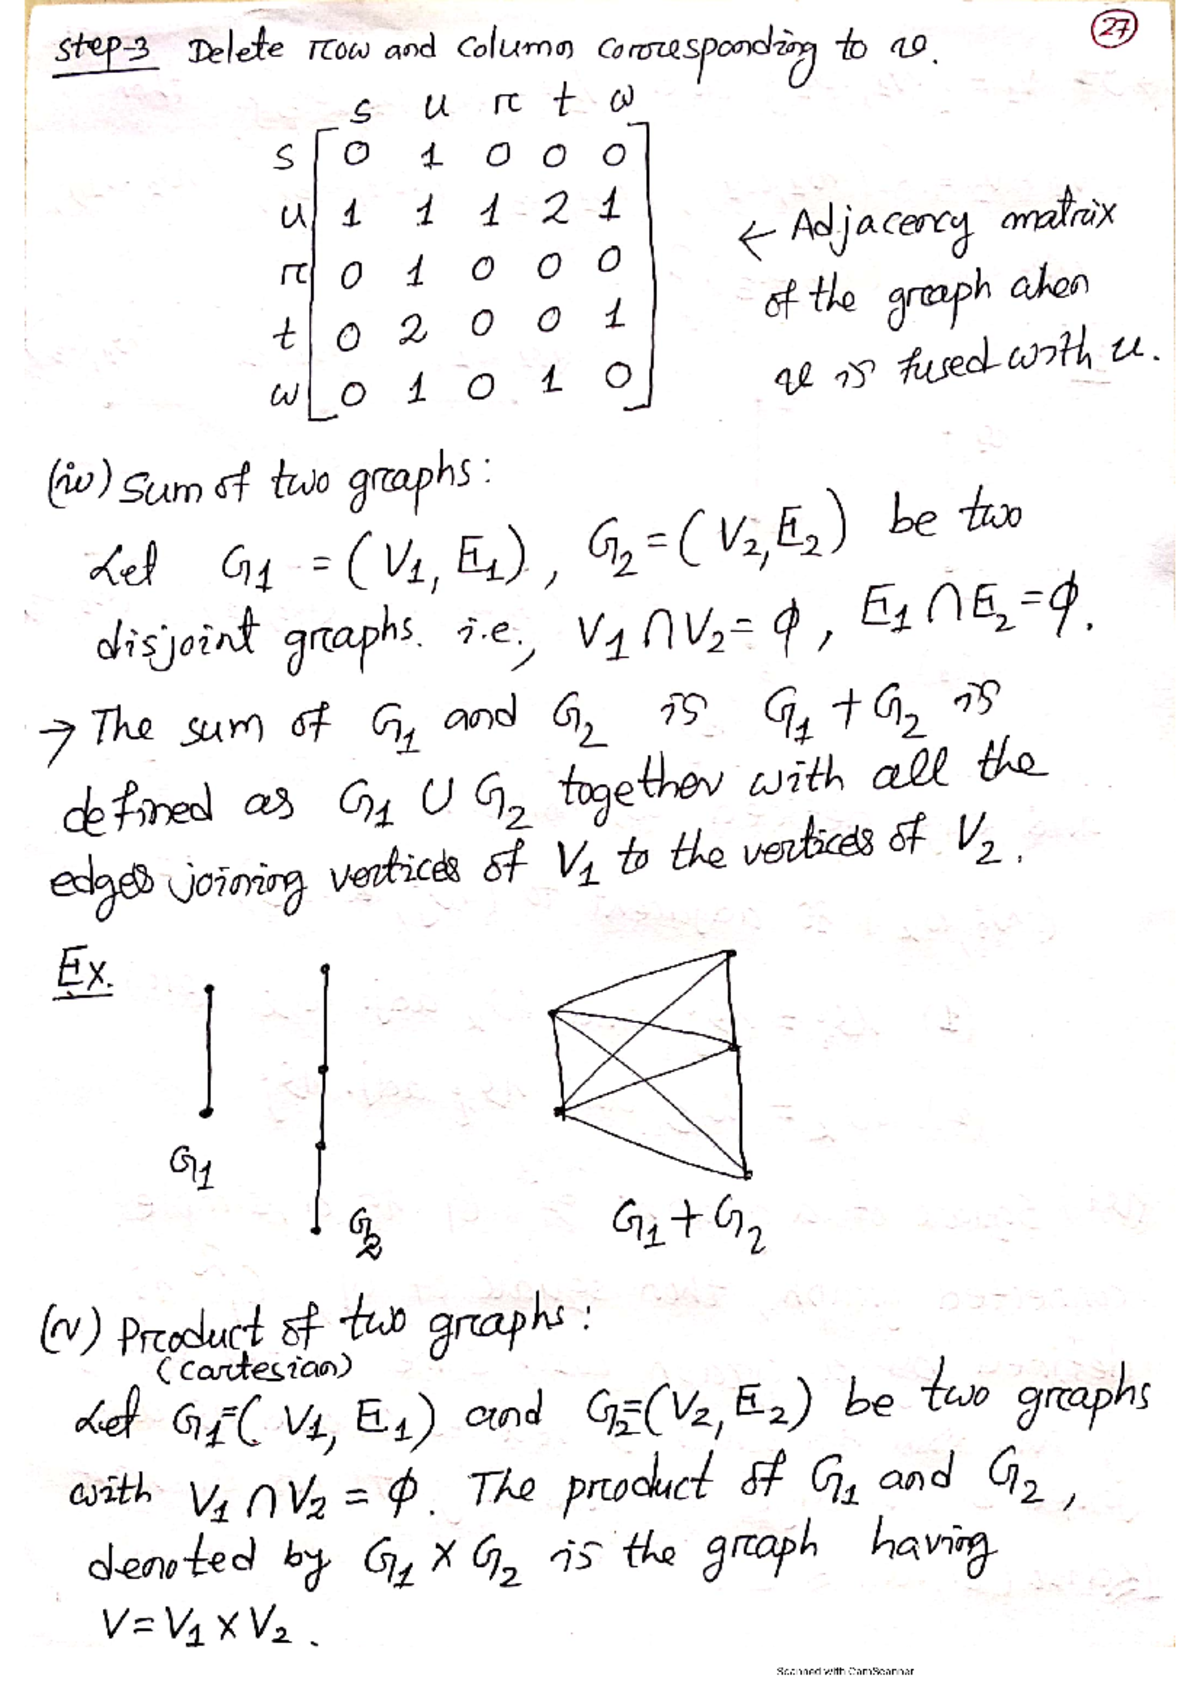 27
Step-3 Delete row and column corresponding to v.
s u r t w
s 0 1 0 0 0
u 1 1 1 2 1
r 0 1 0 0 0
t 0 2 0 0 1
w 0 1 0 1 0
← Adjacency matrix
of the graph when
v is fused with u.
(iv) Sum of two graphs:
Let G₁ = (V₁, E₁), G₂ = (V₂, E₂) be two
disjoint graphs. i.e., V₁ ∩ V₂ = ϕ, E₁ ∩ E₂ = ϕ.
→ The sum of G₁ and G₂ is G₁ + G₂ is
defined as G₁ ∪ G₂ together with all the
edges joining vertices of V₁ to the vertices of V₂.
Ex.
G₁
G₂
G₁ + G₂
(v) Product of two graphs:
(cartesian)
Let G₁ = (V₁, E₁) and G₂ = (V₂, E₂) be two graphs
with V₁ ∩ V₂ = ϕ. The product of G₁ and G₂,
denoted by G₁ × G₂ is the graph having
V = V₁ × V₂.
Scanned with CamScanner